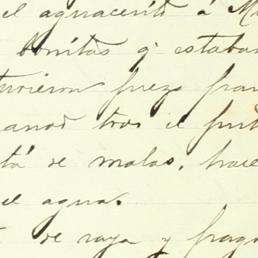 el aguacerito á M
bonitas q. estaban
tuvieron fuego fran
anos tras el fut
tá de malas, hace
el agua.
de raya y frag